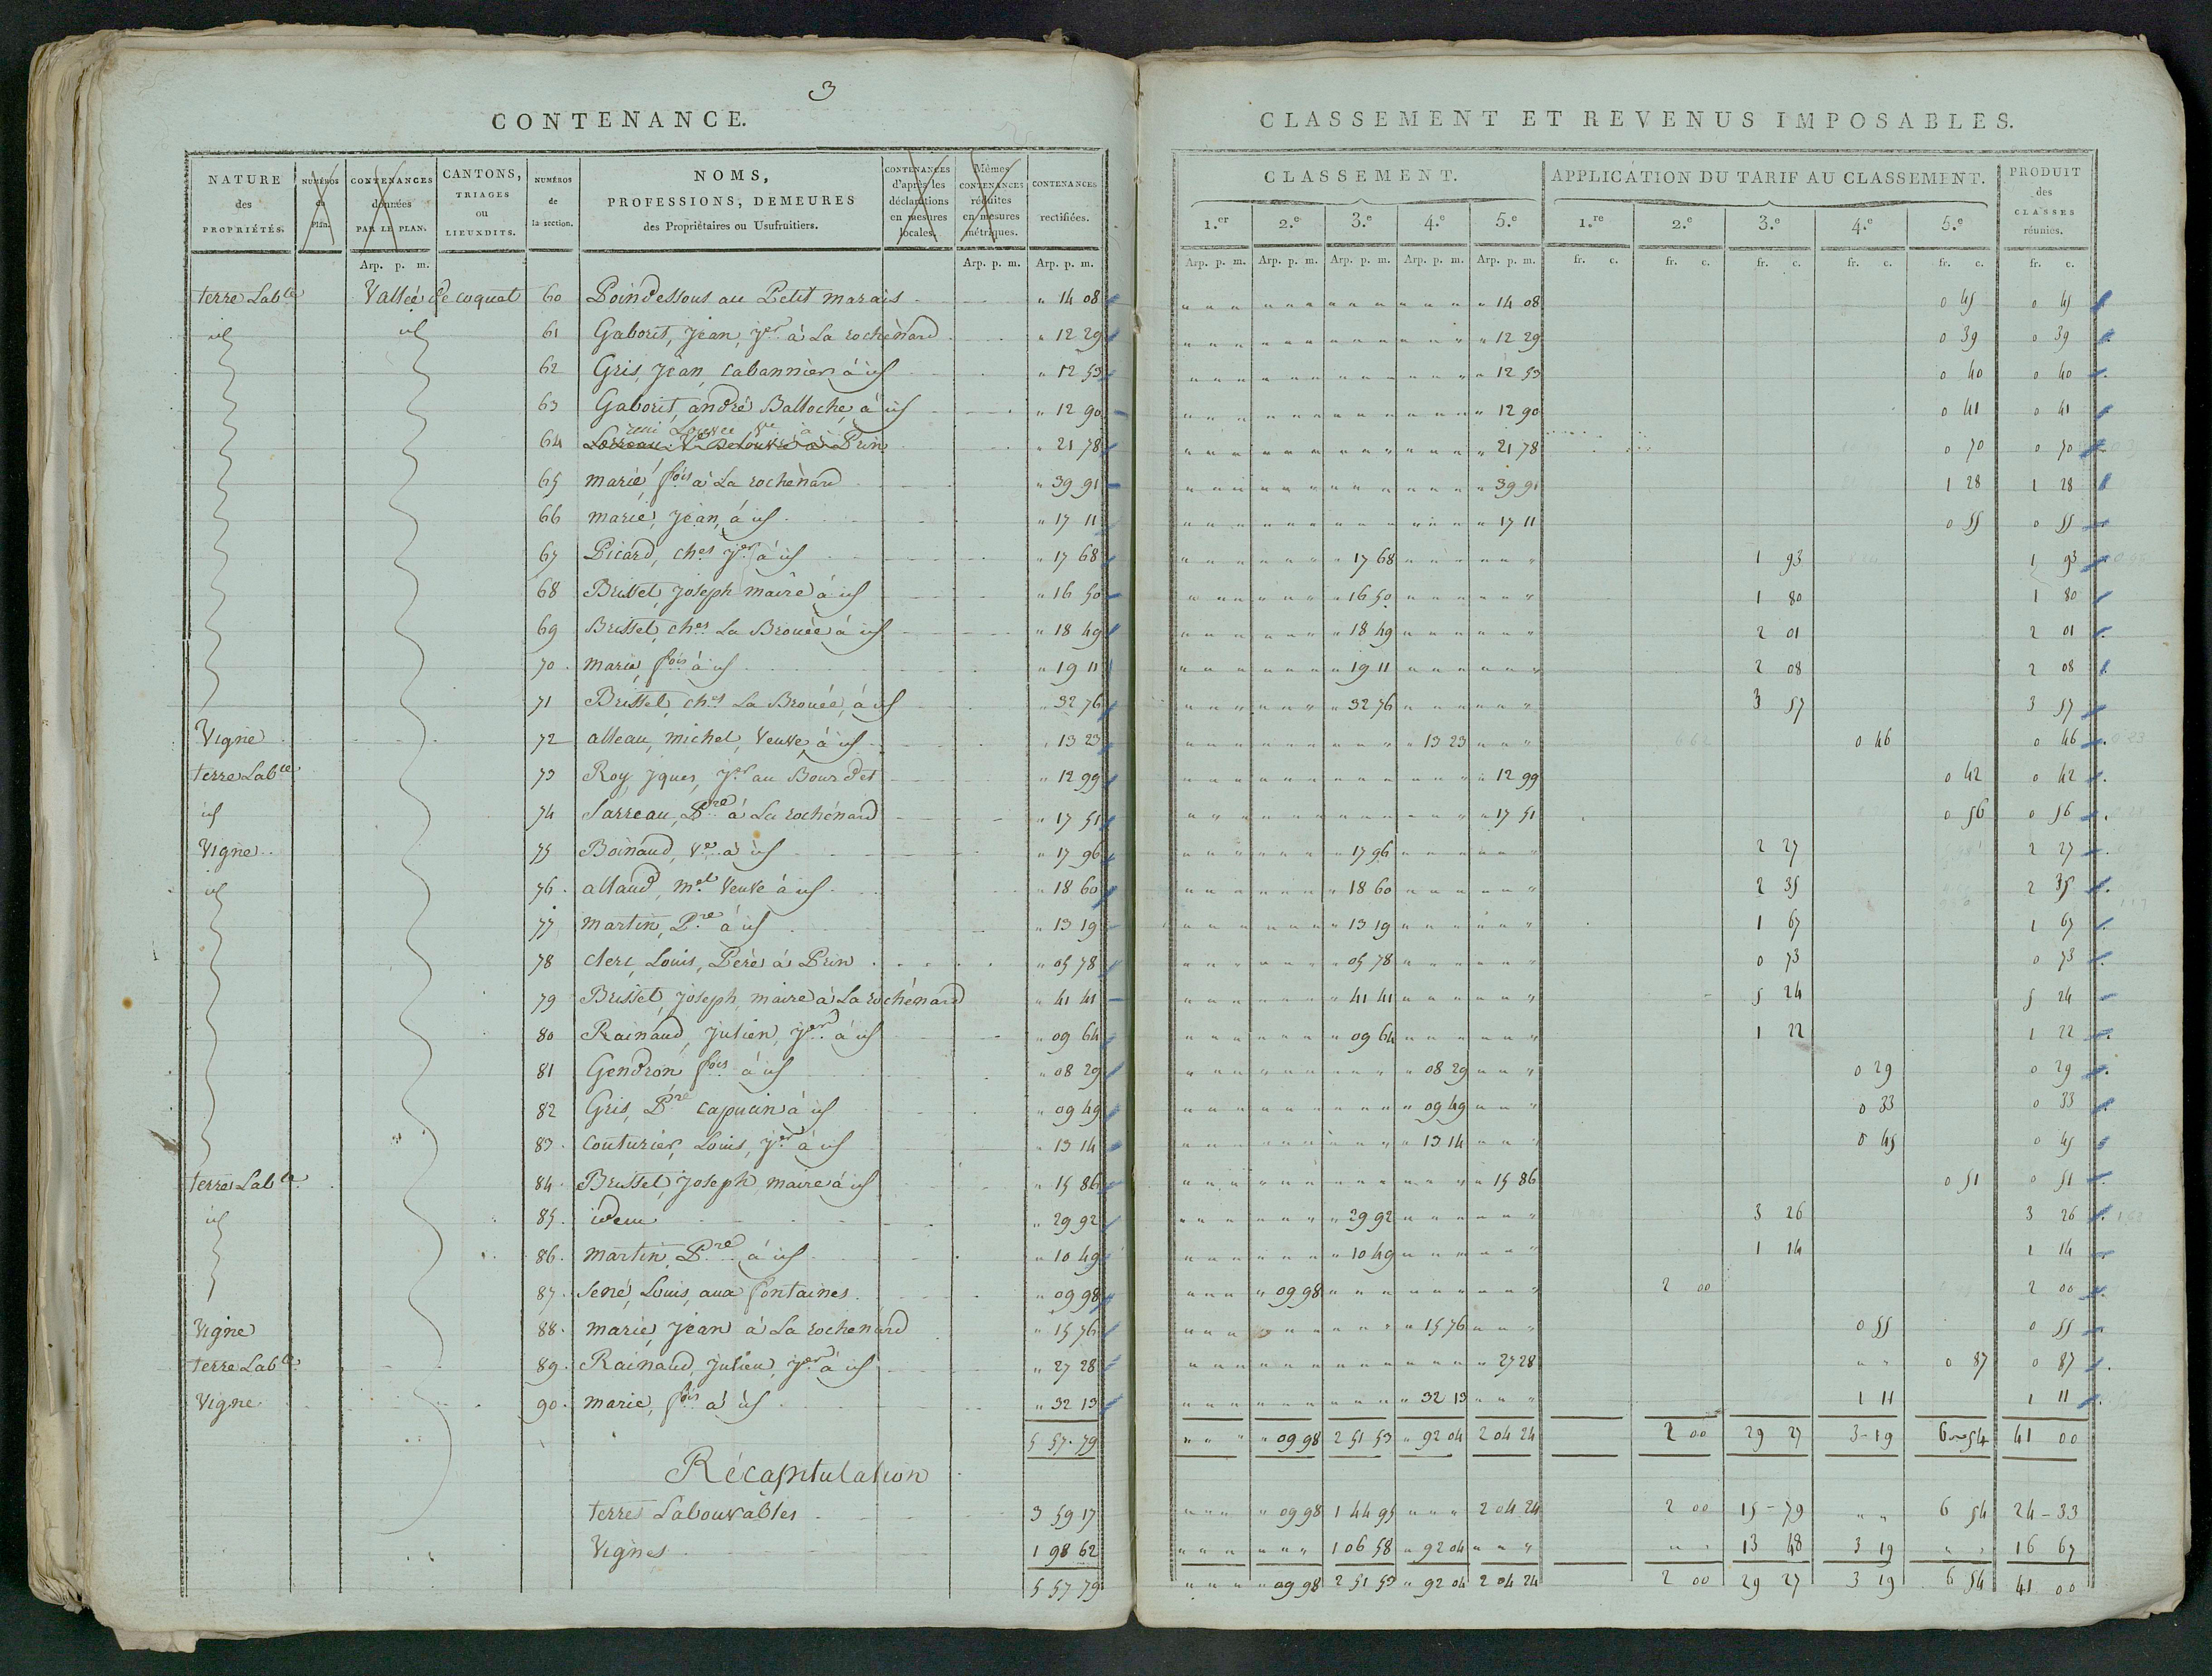 3
CONTENANCE.
NATURE des PROPRIÉTÉS. NUMÉROS du Plan. CONTENANCES données PAR LE PLAN. CANTONS, TRIAGES ou LIEUXDITS. NUMÉROS de la section. NOMS, PROFESSIONS, DEMEURES des Propriétaires ou Usufruitiers. CONTENANCES d'après les déclarations en mesures locales. Mêmes CONTENANCES réduites en mesures métriques. CONTENANCES rectifiées.
Arp. p. m. Arp. p. m. Arp. p. m.
terre Lable Vallée de coquat 60 Poindessous au Petit marais " 14 08
id id 61 Gaborit, Jean, Jer à La rochènard " 12 29
62 Gris, Jean, Cabannier à id " 12 53
63 Gaborit, andré Balloche, à id " 12 90
64 Prin " 21 78
65 marié, fois à La rochènard " 39 91
66 marié, Jean, à id " 17 11
67 Picard, ches Jer à id " 17 68
68 Brisset, Joseph maire à id " 16 50
69 Brisset, ches La Brouée à id " 18 49
70 marié, fois à id " 19 11
71 Brisset, ches La Brouée, à id " 32 76
Vigne 72 alleau, michel, Veuve, à id " 13 23
terre Lable 73 Roy, Jques, Jer au Bourdet " 12 99
id 74 Sarreau, Pre à La rochénard " 17 51
Vigne 75 Boinaud, ve à id " 17 96
id 76 allaud, mel Veuve à id " 18 60
77 martin, Pre à id " 13 19
78 clerc, Louis, Père à Prin " 05 78
79 Brisset, Joseph, maire à La rochénard " 41 41
80 Rainaud, Julien, Jer à id " 09 64
81 Gendron fois à id " 08 29
82 Gris, Pre capucin à id " 09 49
83 couturier, Louis, Jer à id " 13 14
terre Lable 84 Brisset, Joseph maire à id " 15 86
id 85 idem " 29 92
86 martin, Pre à id " 10 49
87 Sené, Louis, aux fontaines " 09 98
Vigne 88 marié, Jean à La rochenard " 15 76
terre Lable 89 Rainaud, Julien, Jer à id " 27 28
Vigne 90 marié, fois à id " 32 13
5 57 79
Récapitulation
terres Labourables 3 59 17
Vignes 1 98 62
5 57 79
CLASSEMENT ET REVENUS IMPOSABLES.
CLASSEMENT. APPLICATION DU TARIF AU CLASSEMENT. PRODUIT des CLASSES réunies.
1.er 2.e 3.e 4.e 5.e 1.re 2.e 3.e 4.e 5.e
Arp. p. m. Arp. p. m. Arp. p. m. Arp. p. m. Arp. p. m. fr. c. fr. c. fr. c. fr. c. fr. c. fr. c.
" 14 08 0 45 0 45
" 12 29 0 39 0 39
" 12 53 0 40 0 40
" 12 90 0 41 0 41
" 21 78 0 70 0 70
" 39 91 1 28 1 28
" 17 11 0 55 0 55
" 17 68 1 93 1 93
" 16 50 1 80 1 80
" 18 49 2 01 2 01
" 19 11 2 08 2 08
" 32 76 3 57 3 57
" 13 23 0 46 0 46
" 12 99 0 42 0 42
" 17 51 0 56 0 56
" 17 96 2 27 2 27
" 18 60 2 35 2 35
" 13 19 1 67 1 67
" 05 78 0 73 0 73
" 41 41 5 24 5 24
" 09 64 1 22 1 22
" 08 29 0 29 0 29
" 09 49 0 33 0 33
" 13 14 0 45 0 45
" 15 86 0 51 0 51
" 29 92 3 26 3 26
" 10 49 1 14 1 14
" 09 98 2 00 2 00
" 15 76 0 55 0 55
" 27 28 " " 0 87 0 87
" 32 13 1 11 1 11
" " " " 09 98 2 51 53 " 92 04 2 04 24 2 00 29 27 3-19 6-54 41 00
" " " " 09 98 1 44 95 " " " 2 04 24 2 00 15-79 " " 6 54 24-33
" " " " " " 1 06 58 " 92 04 " " " " " 13 48 3 19 " " 16 67
" " " " 09 98 2 51 53 " 92 04 2 04 24 2 00 29 27 3 19 6 54 41 00